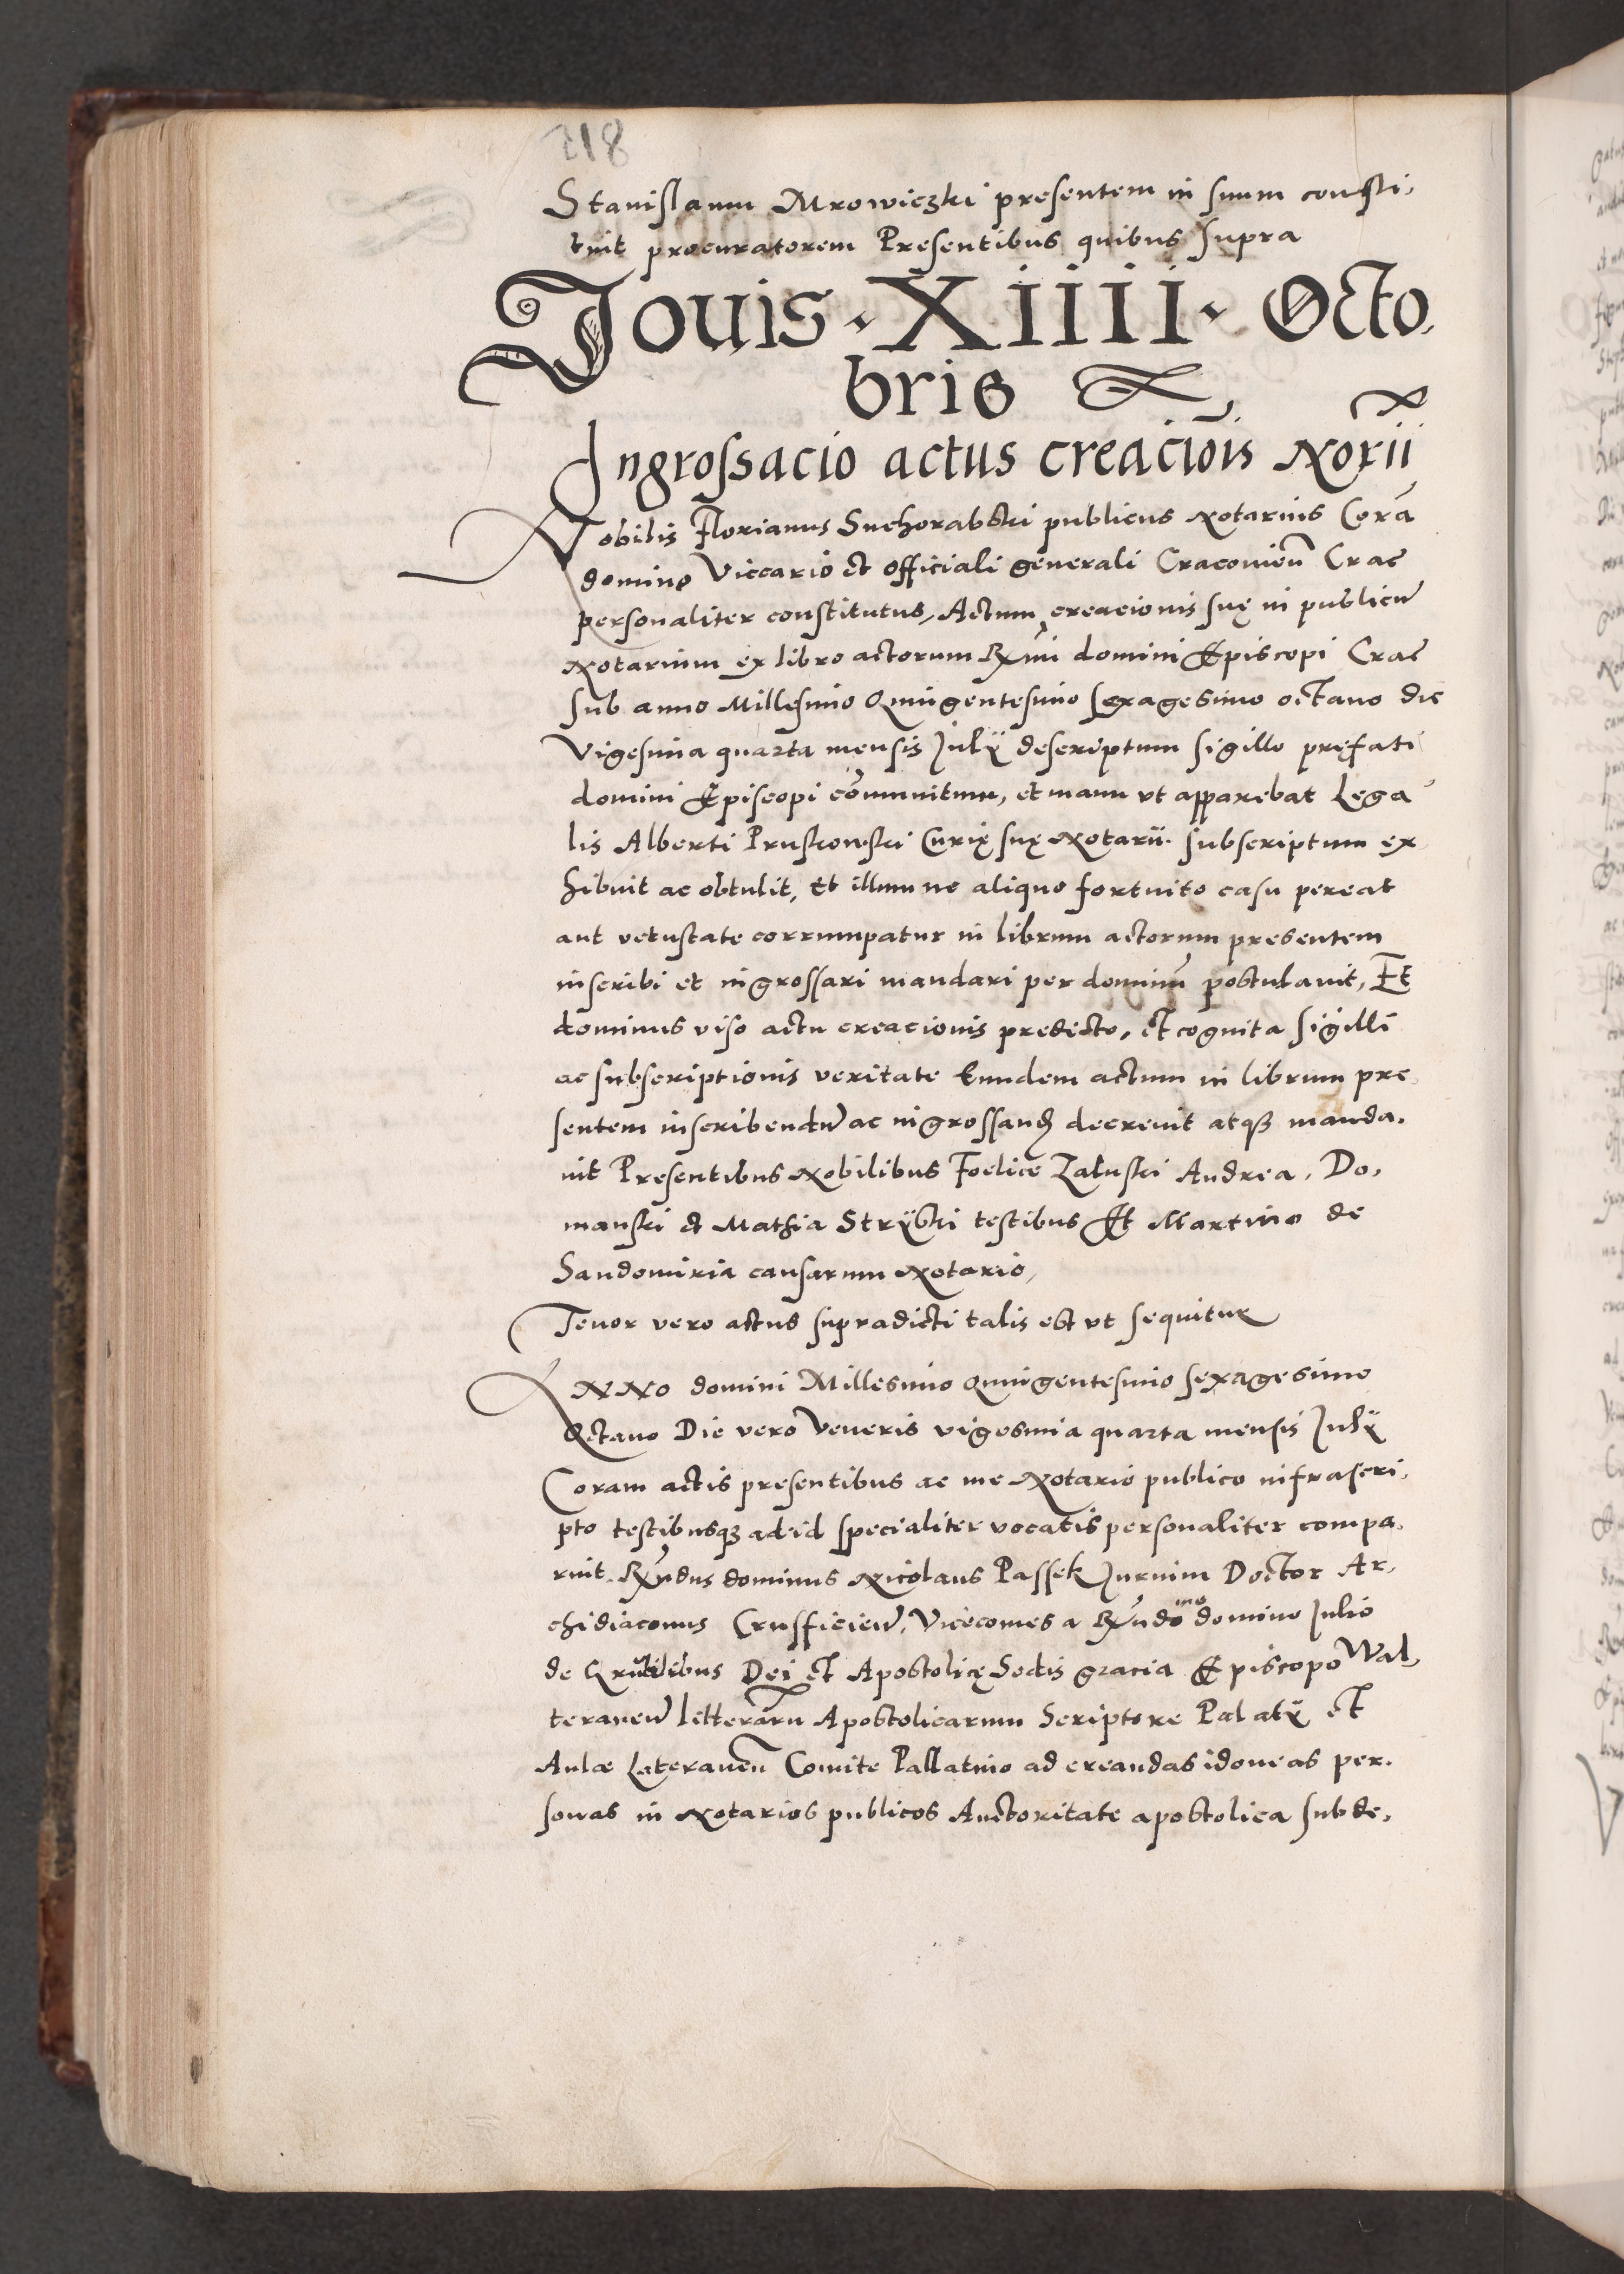 518
Stanislaum Mrowiczki presentem in suum consti,
tuit procuratorem Presentibus quibus supra
Jouis · XIIII · Octo,
bris
Ingrossacio actus creaciōis Norii
Nobilis Florianus Suchorabski publicus Notarius Corā
domino Viccario et officiali generali Cracovieñ Crac
personaliter constitutus, Actum creacionis suę in publicū
Notarium ex libro actorum Rmi domini Episcopi Crac
sub anno Millesimo Quingentesimo sexagesimo octauo die
Vigesima quarta mensis Julÿ descriptum sigillo pręfati
domini Episcopi cōmunitum, et manu vt apparebat Lega
lis Alberti Pruskowski Curię suę Notarii. subscriptum ex
hibuit ac obtulit, Et illum ne aliquo fortuito casu pereat
aut vetustate corrumpatur in librum actorum presentem
inscribi et ingrossari mandari per dominū postulauit, Et
dominus viso actu creacionis predicto, et cognita sigilli
ac subscriptionis veritate Eundem actum in librum pre
sentem inscribendū ac ingrossand decreuit atqȝ manda,
uit Presentibus Nobilibus Foelice Zaluski Andrea, Do,
manski et Mathia Strÿbki testibus Et Martino de
Sandomiria causarum Notario,
Tenor vero actus supradicti talis est vt sequitur
ANNo domini Millesimo Quingentesimo sexagesimo
Octauo Die vero Veneris vigesima quarta mensis Julÿ
Coram actis presentibus ac me Notario publico infrascri,
pto testibusqȝ ad id specialiter vocatis personaliter compa,
ruit Rndus dominus Nicolaus Passek Juruim Doctor Ar,
chidiaconus Crusficień, Vicecomes a Rndo imo domino Julio
de Dei et Apostolicę Sedis gracia Episcopo Wal,
teraneñ litterarū Apostolicarum Scriptore Palatÿ et
Aulæ Lateraneñ Comite Pallatino ad creandas idoneas per,
sonas in Notarios publicos Auctoritate apostolica subde,